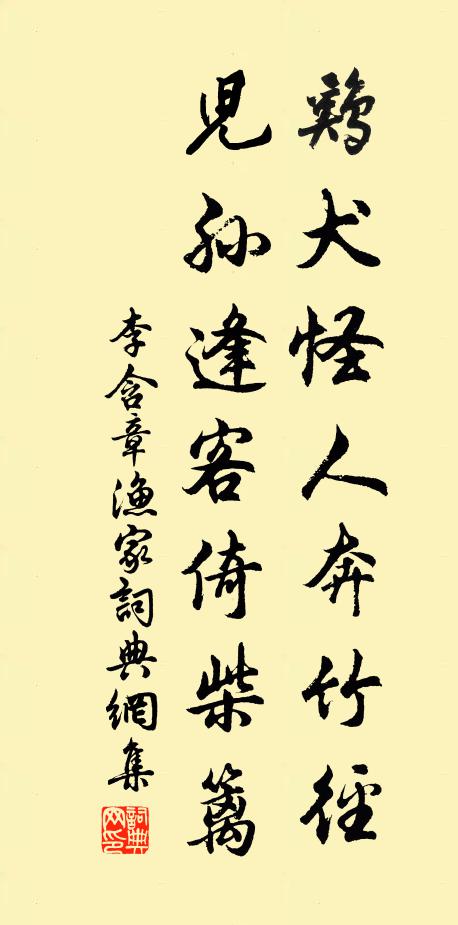 鷄犬怪人奔竹徑
兒孫逢客倚柴籬
李含章漁家詞典網集
詞典网印